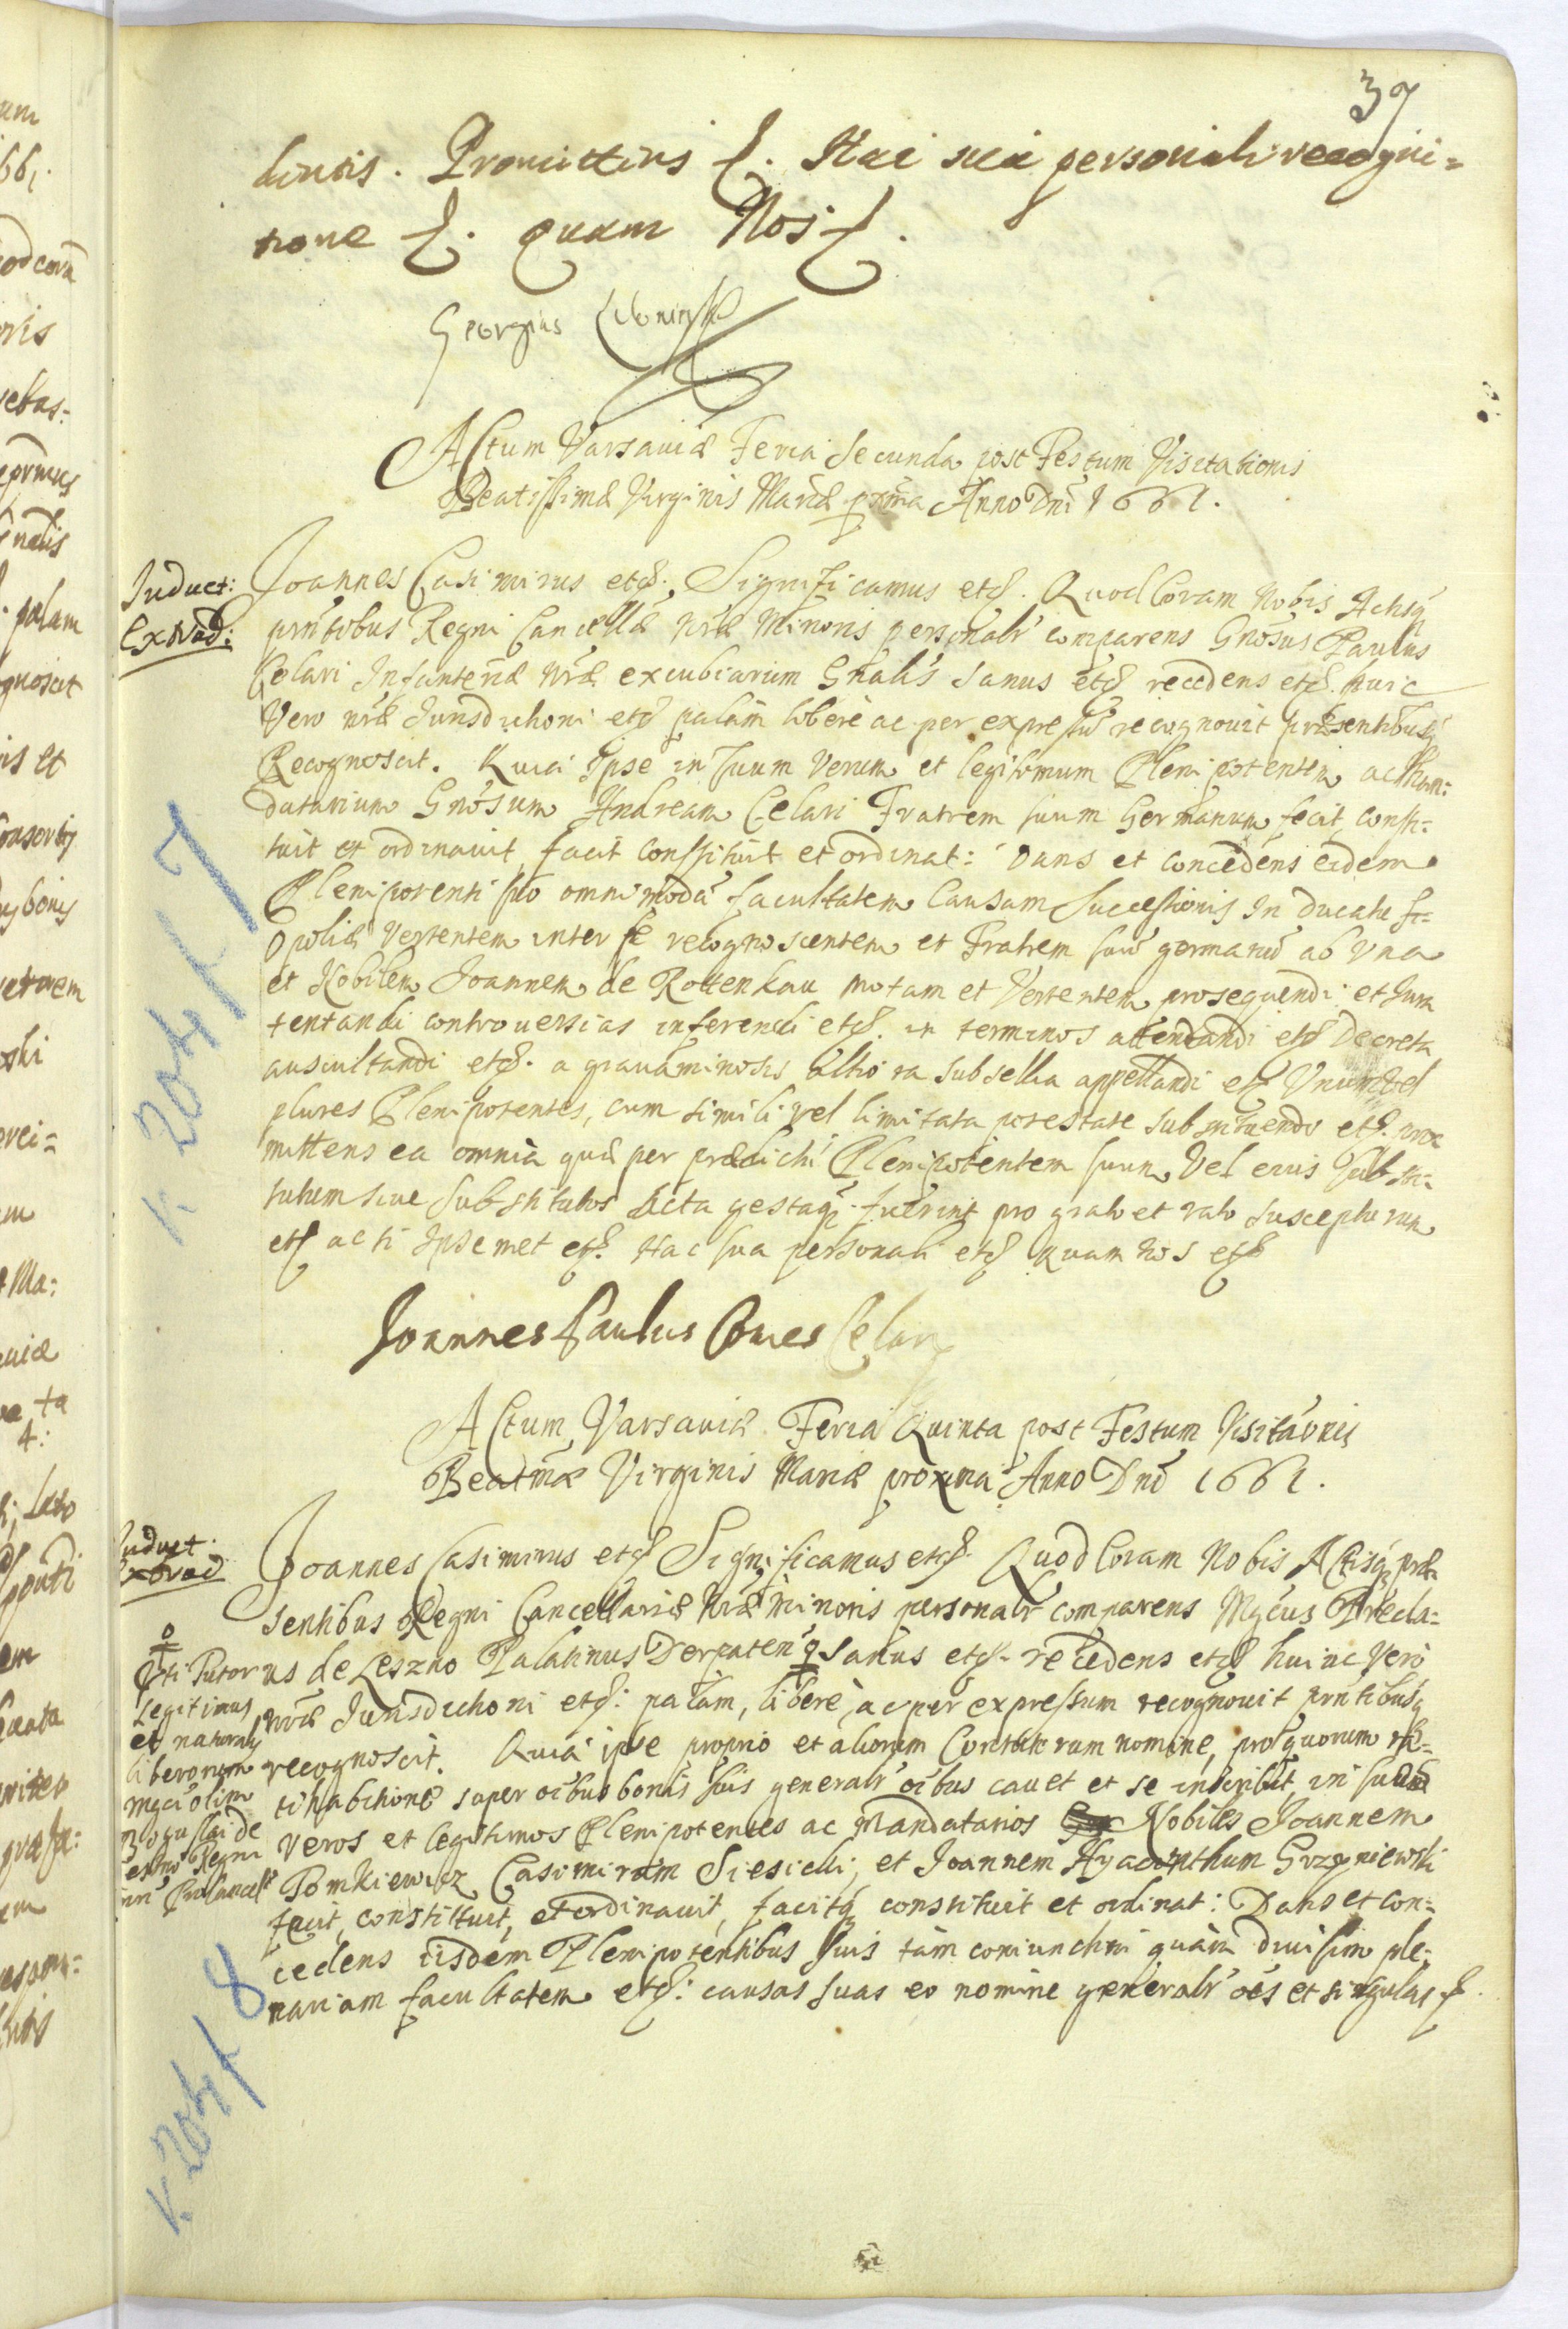 39
Promittens etc. Hac sua personali recogni=
tione etc. quam Nos etc.
Georgius
Actum Varsaviæ Feria Secunda post Festum Visitationis
Beatissimæ Virginis Mariæ prȏma Anno Dni 1661.
Induct:
Extrad:
Joannes Casimirus etc. Significamus etc. Quod Coram Nobis Actisq
prntibus Regni Cancellæ nræ Minoris personalr comparens Gnosus Paulus
Celari Infanteriæ nræ excubiarum Gnalis sanus etc recedens etc. huic
Vero nræ Jurisdictioni etc palam libere ac per expressum recognovit præsentibusq
Recognoscit. Quia Ipse in suum Verum et legitimum Plenipotentem ac Man:
datarium Gnosum Andream Celari Fratrem suum Germanum fecit, consti=
tuit et ordinauit, facit constituit et ordinat: Dans et concedens eidem
Plenipotenti suo omnimodã facultatem Causam Successionis In Ducatu
Opoliæ Vertentem inter se recognoscentem et Fratrem suum germanũ ab Una
et Nobilem Joannem de Rottenkau motam et Vertentem prosequendi et Jura
tentandi controversias inferendi etc. in terminos attentandi etc Decreta
auscultandi etc. a gravaminosis altiora subsellia appellandi etc Unum vel
plures Plenipotentes, cum simili vel limitata potestate substituendo etc. pro
mittens ea omnia quæ per prædictũ Plenipotentem suum, Vel eius Substi=
tutum sive Substitutos acta gestaq fuerint pro grato et rato suscepturum
etc ac si Ipsemet etc. Hac sua personali etc quam Nos etc
Joannes Paulus Comes Celary
Actum Varsaviæ Feria Quinta post Festum Visitaõnis
Beatmæ Virginis Mariæ proxima Anno Dni 1661.
Induct.
Extrad
Joannes Casimirus etc Significamus etc. Quod Coram Nobis Actisq præ
sentibus Regni Cancellariæ Nræ Minoris personalr comparens Mgcus Præcla=
rus de Leszno Palatinus Derpaten sanus etc. recedens etc huic Vero
nræ Jurisdictioni etc: palam, libere, ac per expressum recognovit prntibusq
recognoscit. Quia ipse proprio et aliorum nomine, pro quorum ra=
tihabitione super oibus bonis suis generalr oibus cavet et se inscribit, in suos
veros et legitimos Plenipotentes ac Mandatarios Nobiles Joannem
Tomkiewicz Casimirum Siesicki, et Joannem Hyacinthum Grzyniewski
fecit, constituit, et ordinavit, facitq constituit et ordinat: Dans et con=
cedens iisdem Plenipotentibus suis tam coniunctim quam divisim ple=
nariam facultatem etc: causas suas eo nomine generalr oes et singulas etc.
Uti Tutor
Legitimus
et naturalis
liberorum
Mgci olim
Boguslai de
Leszno Regni
Procancell
k 204/ 7
k. 204/ 8